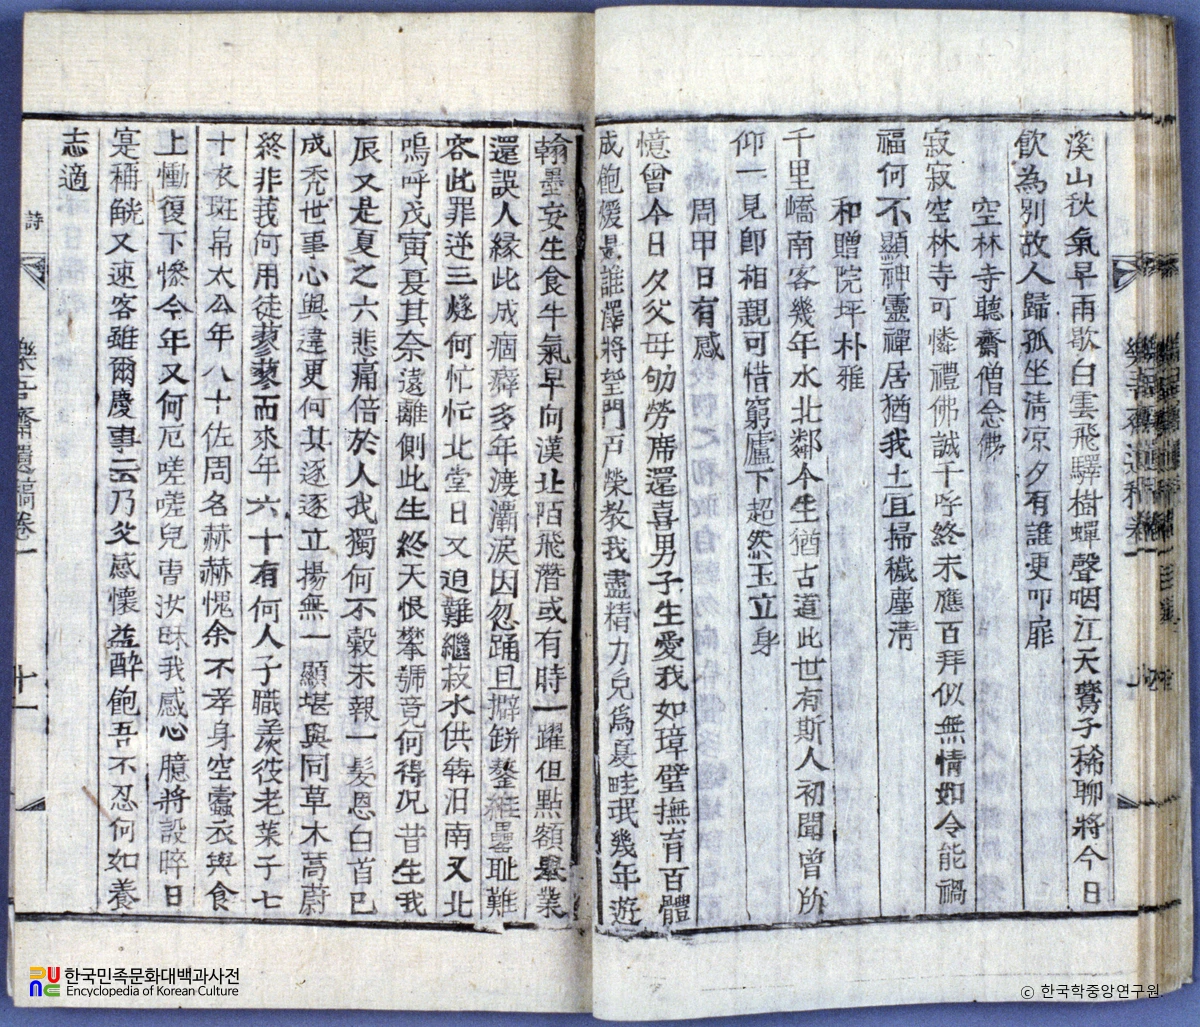 溪山秋氣早雨歇白雲飛驛樹蟬聲咽江天鶩子稀聊將今日
飮為別故人歸孤坐淸凉夕有誰更叩扉
空林寺聽齋僧念佛
寂寂空林寺可憐禮佛誠千呼終未應百拜似無情如令能禍
福何不顯神靈禪居猶我土宜掃穢塵淸
和贈院坪朴雅
千里嶠南客幾年水北鄰今生猶古道此世有斯人初聞曾所
仰一見卽相親可惜窮廬下超然玉立身
周甲日有感
憶曾今日夕父母劬勞席還喜男子生愛我如璋璧撫育百體
成飽煖是誰澤將望門戶榮敎我盡精力兒爲夏畦珉幾年遊
翰墨妄生食牛氣早向漢北陌飛潛或有時一躍但點額擧業
還誤人緣此成痼癖多年渡灞淚因忽踊且擗缾罄維罍恥難
容此罪逆三燧何忙忙北堂日又迫難繼菽水供犇汨南又北
嗚呼戊寅夏其奈遠離側此生終天恨攀號竟何得况昔生我
辰又是夏之六悲痛倍於人我獨何不穀未報一髮恩白首已
成禿世事心與違更何其逐逐立揚無一顯堪與同草木蒿蔚
終非莪何用徒蓼蓼而來年六十有何人子職羨彼老萊子七
十衣斑帛太公年八十佐周名赫赫愧余不孝身空蠹衣與食
上慟復下慘今年又何厄嗟嗟兒曺汝昧我感心臆將設晬日
寔稱觥又速客雖爾慶事云乃爻感懷益醉飽吾不忍何如養
志適
詩
樂吾齋遺稿卷一
十一
한국민족문화대백과사전
Encyclopedia of Korean Culture
ⓒ 한국학중앙연구원